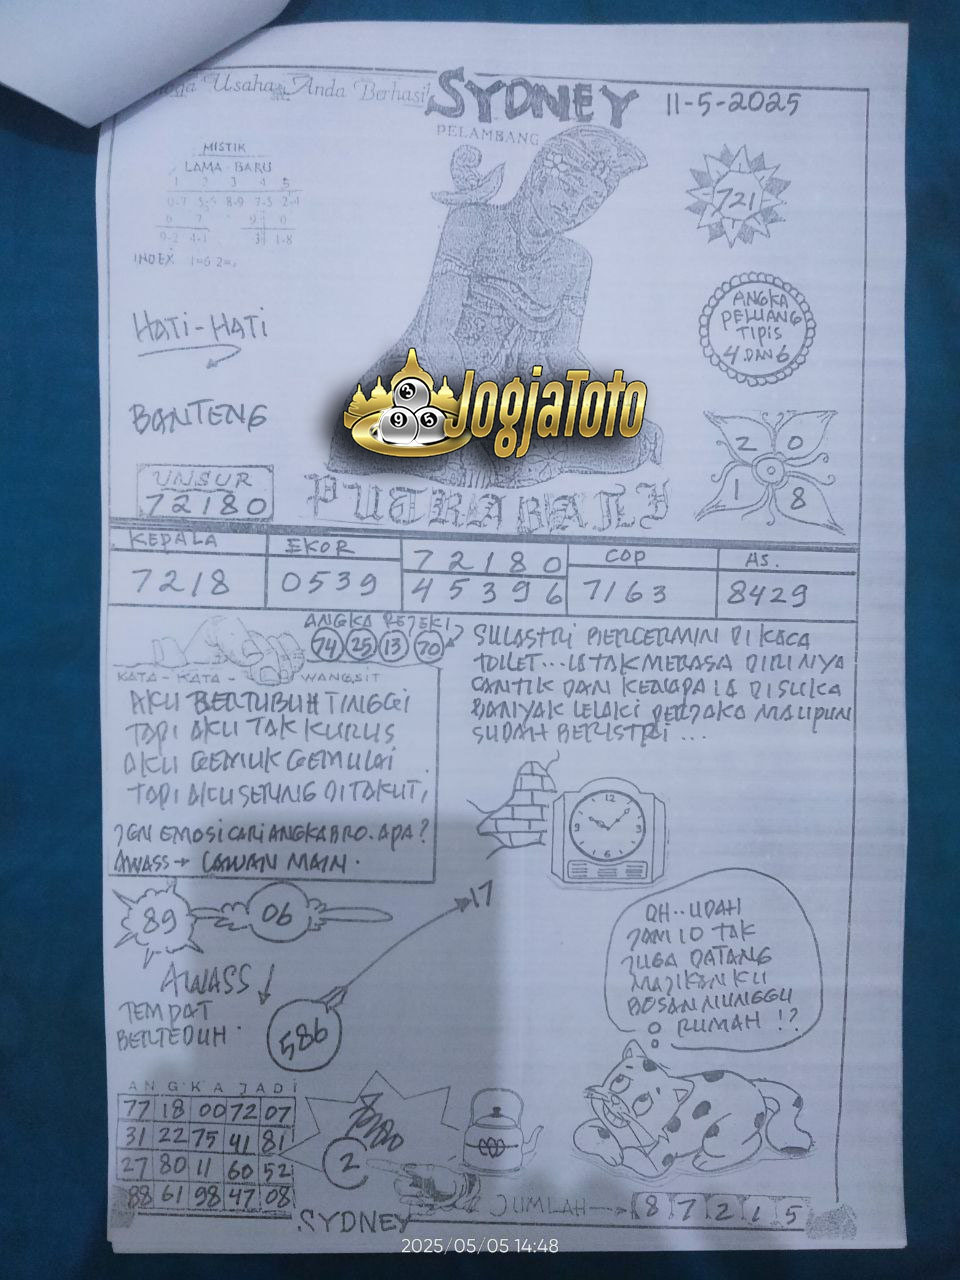 Usaha Anda Berhasil
SYDNEY
11-5-2025
PELAMBANG
MISTIK
LAMA - BARU
1 2 3 4 5
0-7 5-6 8-9 7-5 2-4
6 7 9 0
9-2 4-1 3 1-8
INDEX 1=6 2=
721
HATI-HATI
ANGKA
PELUANG
TIPIS
4 DAN 6
JogjaToto
3
9 5
BANTENG
2 0
1 8
UNSUR
72180
PUTRA BALI
KEPALA
EKOR
72180
COP
AS.
7218
0539
45396
7163
8429
ANGKA REJEKI
74 25 13 70
KATA - KATA - WANGSIT
AKU BERTUBUH TINGGI
TAPI AKU TAK KURUS
AKU GEMUK GEMULAI
TAPI AKU SERING DITAKUTI
JGN EMOSI CARI ANGKA BRO. APA?
AWASS → LAWAN MAIN.
SULASTRI BERCERMIN DI KACA
TOILET... IA TAK MERASA DIRINYA
CANTIK DAN KENAPA IA DISUKA
BANYAK LELAKI PERJAKA MAUPUN
SUDAH BERISTRI ...
12
9 3
6
89
06
17
AWASS
TEMPAT
BERTEDUH
586
OH.. UDAH
JAM 10 TAK
JUGA DATANG
MAJIKANKU
BOSAN NUNGGU
RUMAH !?
ANGKA JADI
77 18 00 72 07
31 22 75 41 81
27 80 11 60 52
88 61 98 47 08
2
JUMLAH → 8 7 2 1 5
SYDNEY
2025/05/05 14:48